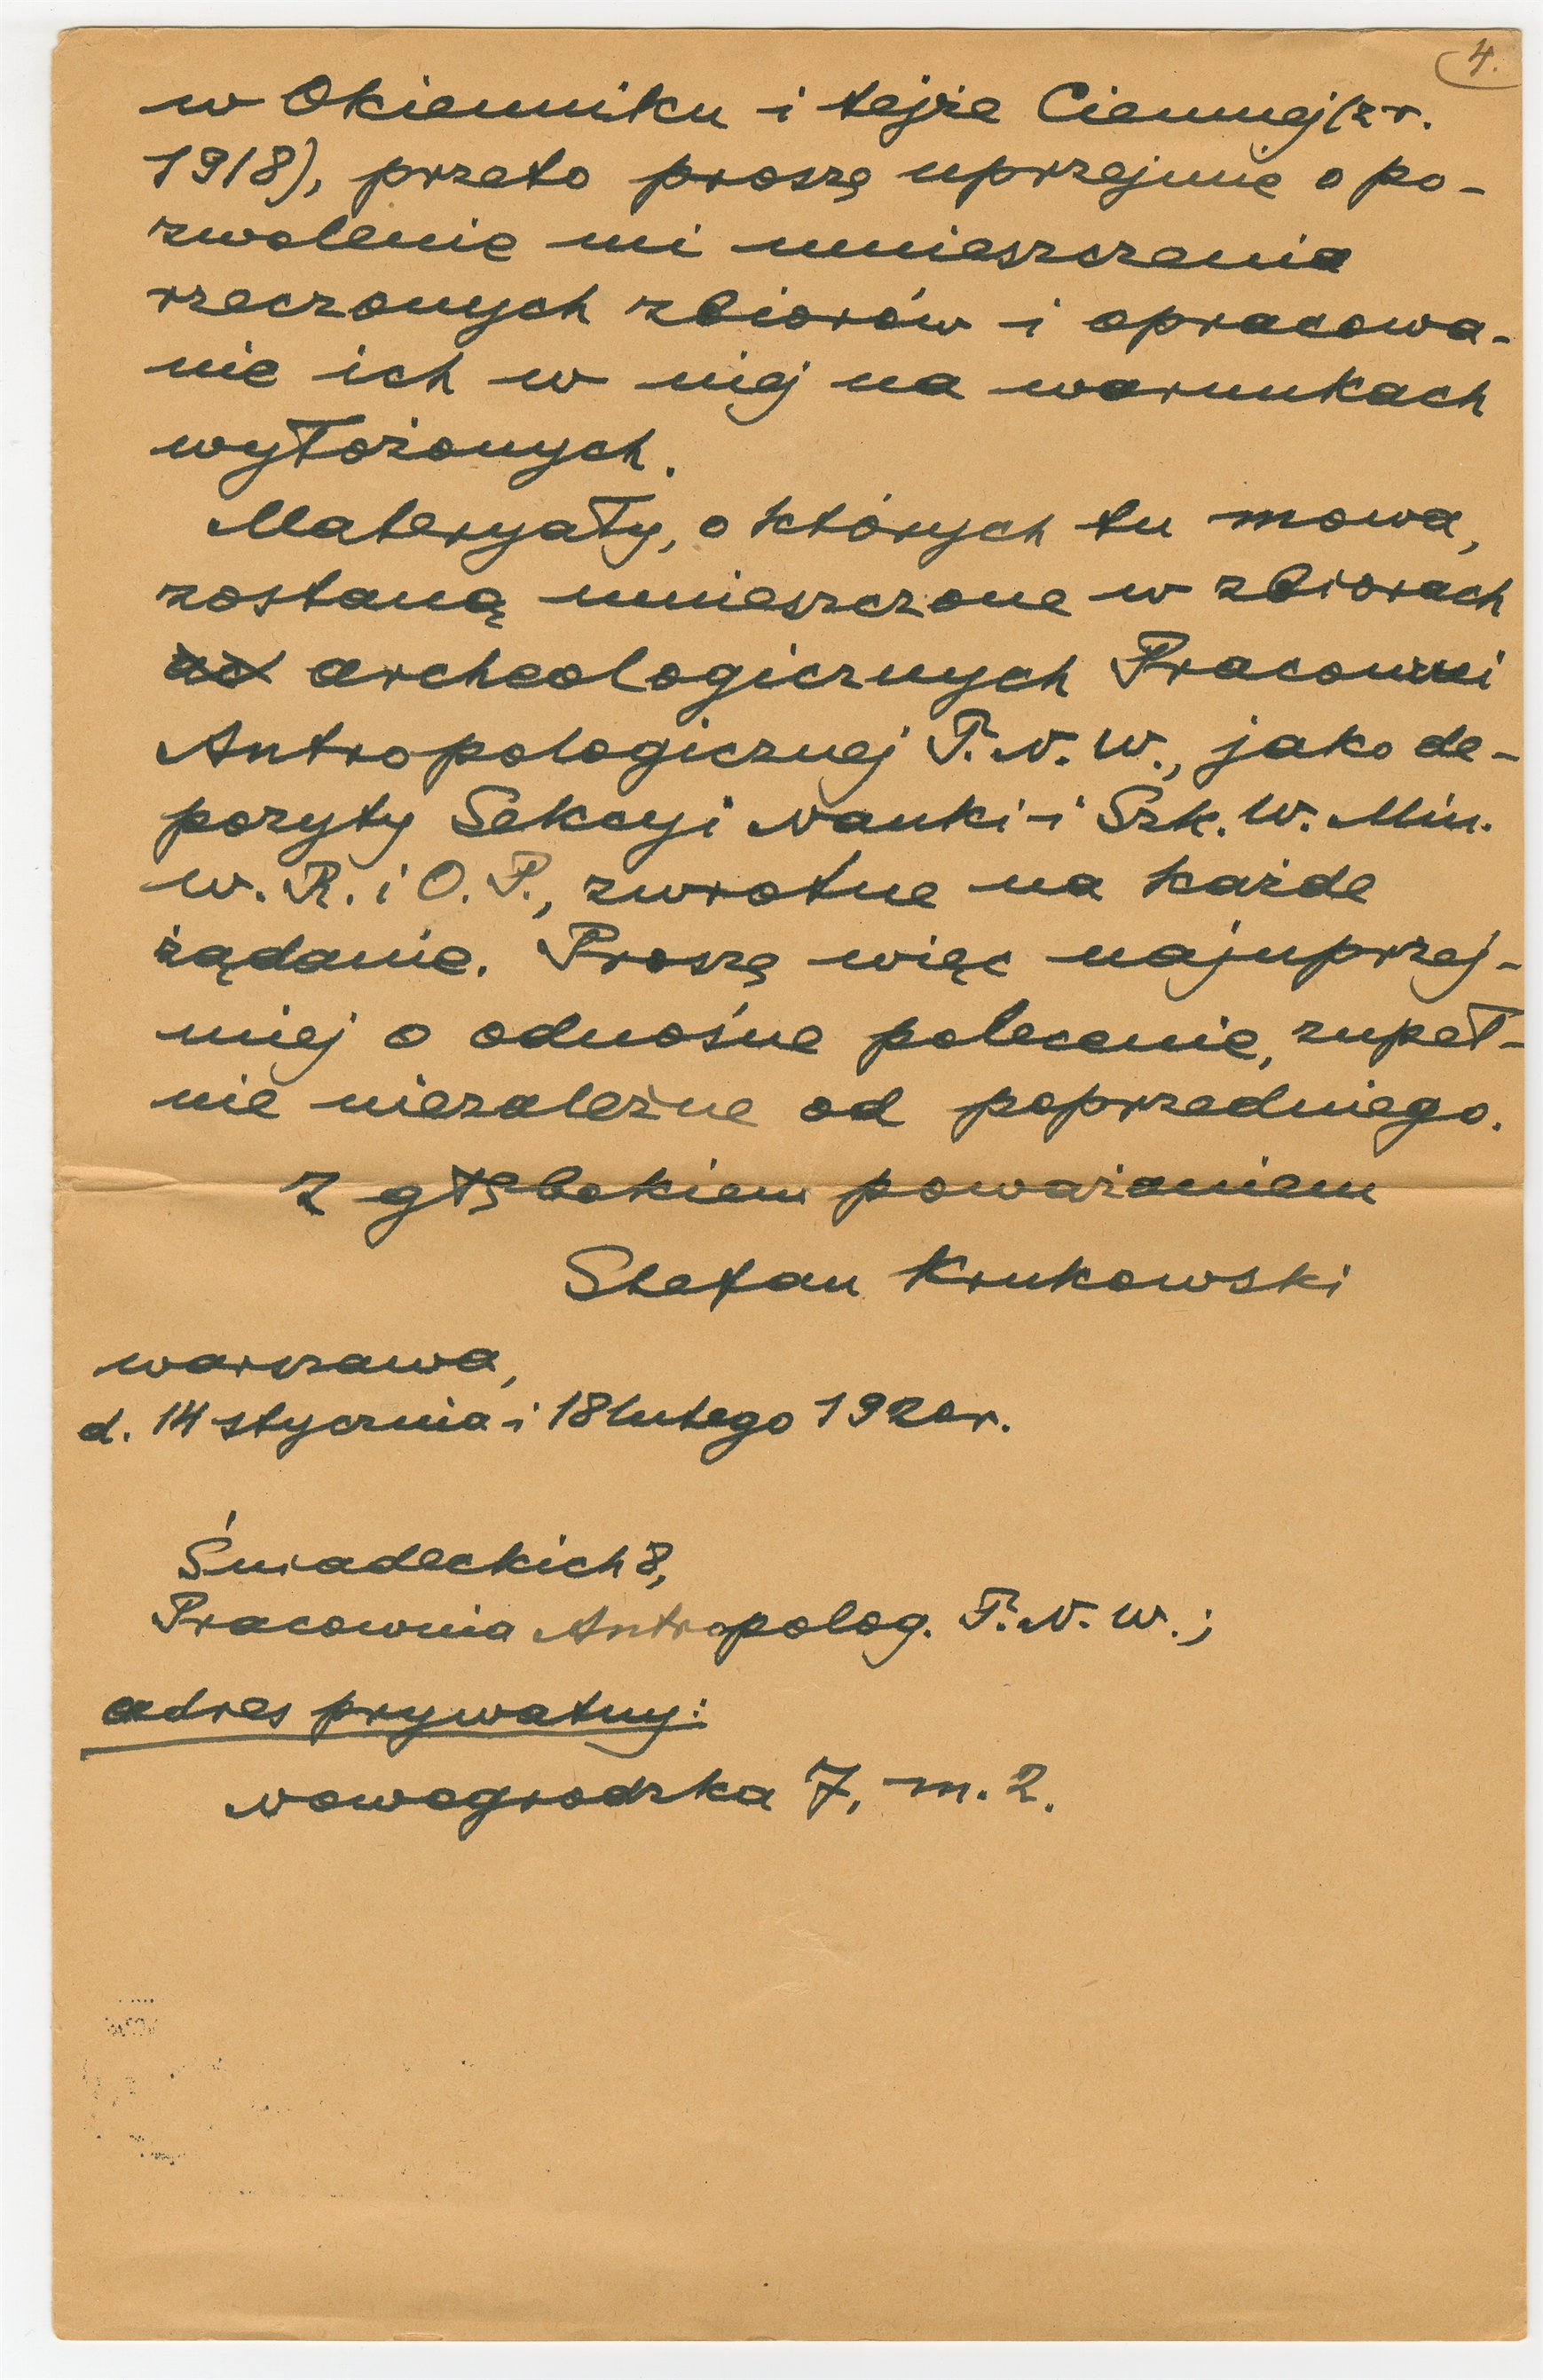 4.
w Okienniku i tejże Ciemnej (z r.
1918), przeto proszę uprzejmie o po-
zwolenie mi umieszczenia
rzeczonych zbiorów i opracowa-
nie ich w niej na warunkach
wyłożonych.
Materyały, o których tu mowa,
zostaną umieszczone w zbiorach
archeologicznych Pracowni
Antropologicznej T. N. W., jako de-
pozyty Sekcyi Nauki i Szk. W. Min.
W. R. i O. P., zwrotne na każde
żądanie. Proszę więc najuprzej-
miej o odnośne polecenie, zupeł-
nie niezależne od poprzedniego.
Z głębokiem poważaniem
Stefan Krukowski
Warszawa,
d. 14 stycznia i 18 lutego 1920 r.
Śniadeckich 8,
Pracownia Antropolog. T. N. W.;
adres prywatny:
Nowogrodzka 7, m. 2.